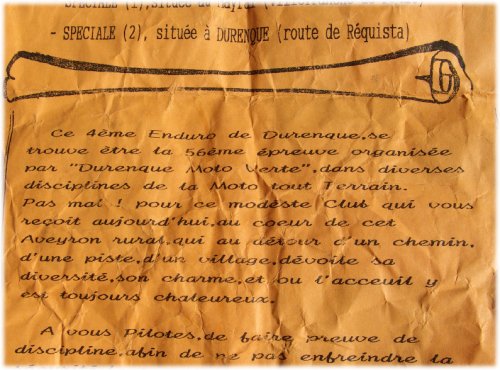 SPECIALE (1), située au
- SPECIALE (2), située à DURENQUE (route de Réquista)
Ce 4éme Enduro de Durenque,se
trouve être la 56éme épreuve organisée
par "Durenque Moto Verte",dans diverses
disciplines de la Moto tout Terrain.
Pas mal ! pour ce modéste Club qui vous
reçoit aujourd'hui,au coeur de cet
Aveyron rural,qui au détour d'un chemin,
d'une piste,d'un village,dévoile sa
diversité,son charme,et ou l'acceuil y
est toujours chaleureux.
A vous Pilotes,de faire preuve de
discipline,afin de ne pas enfreindre la